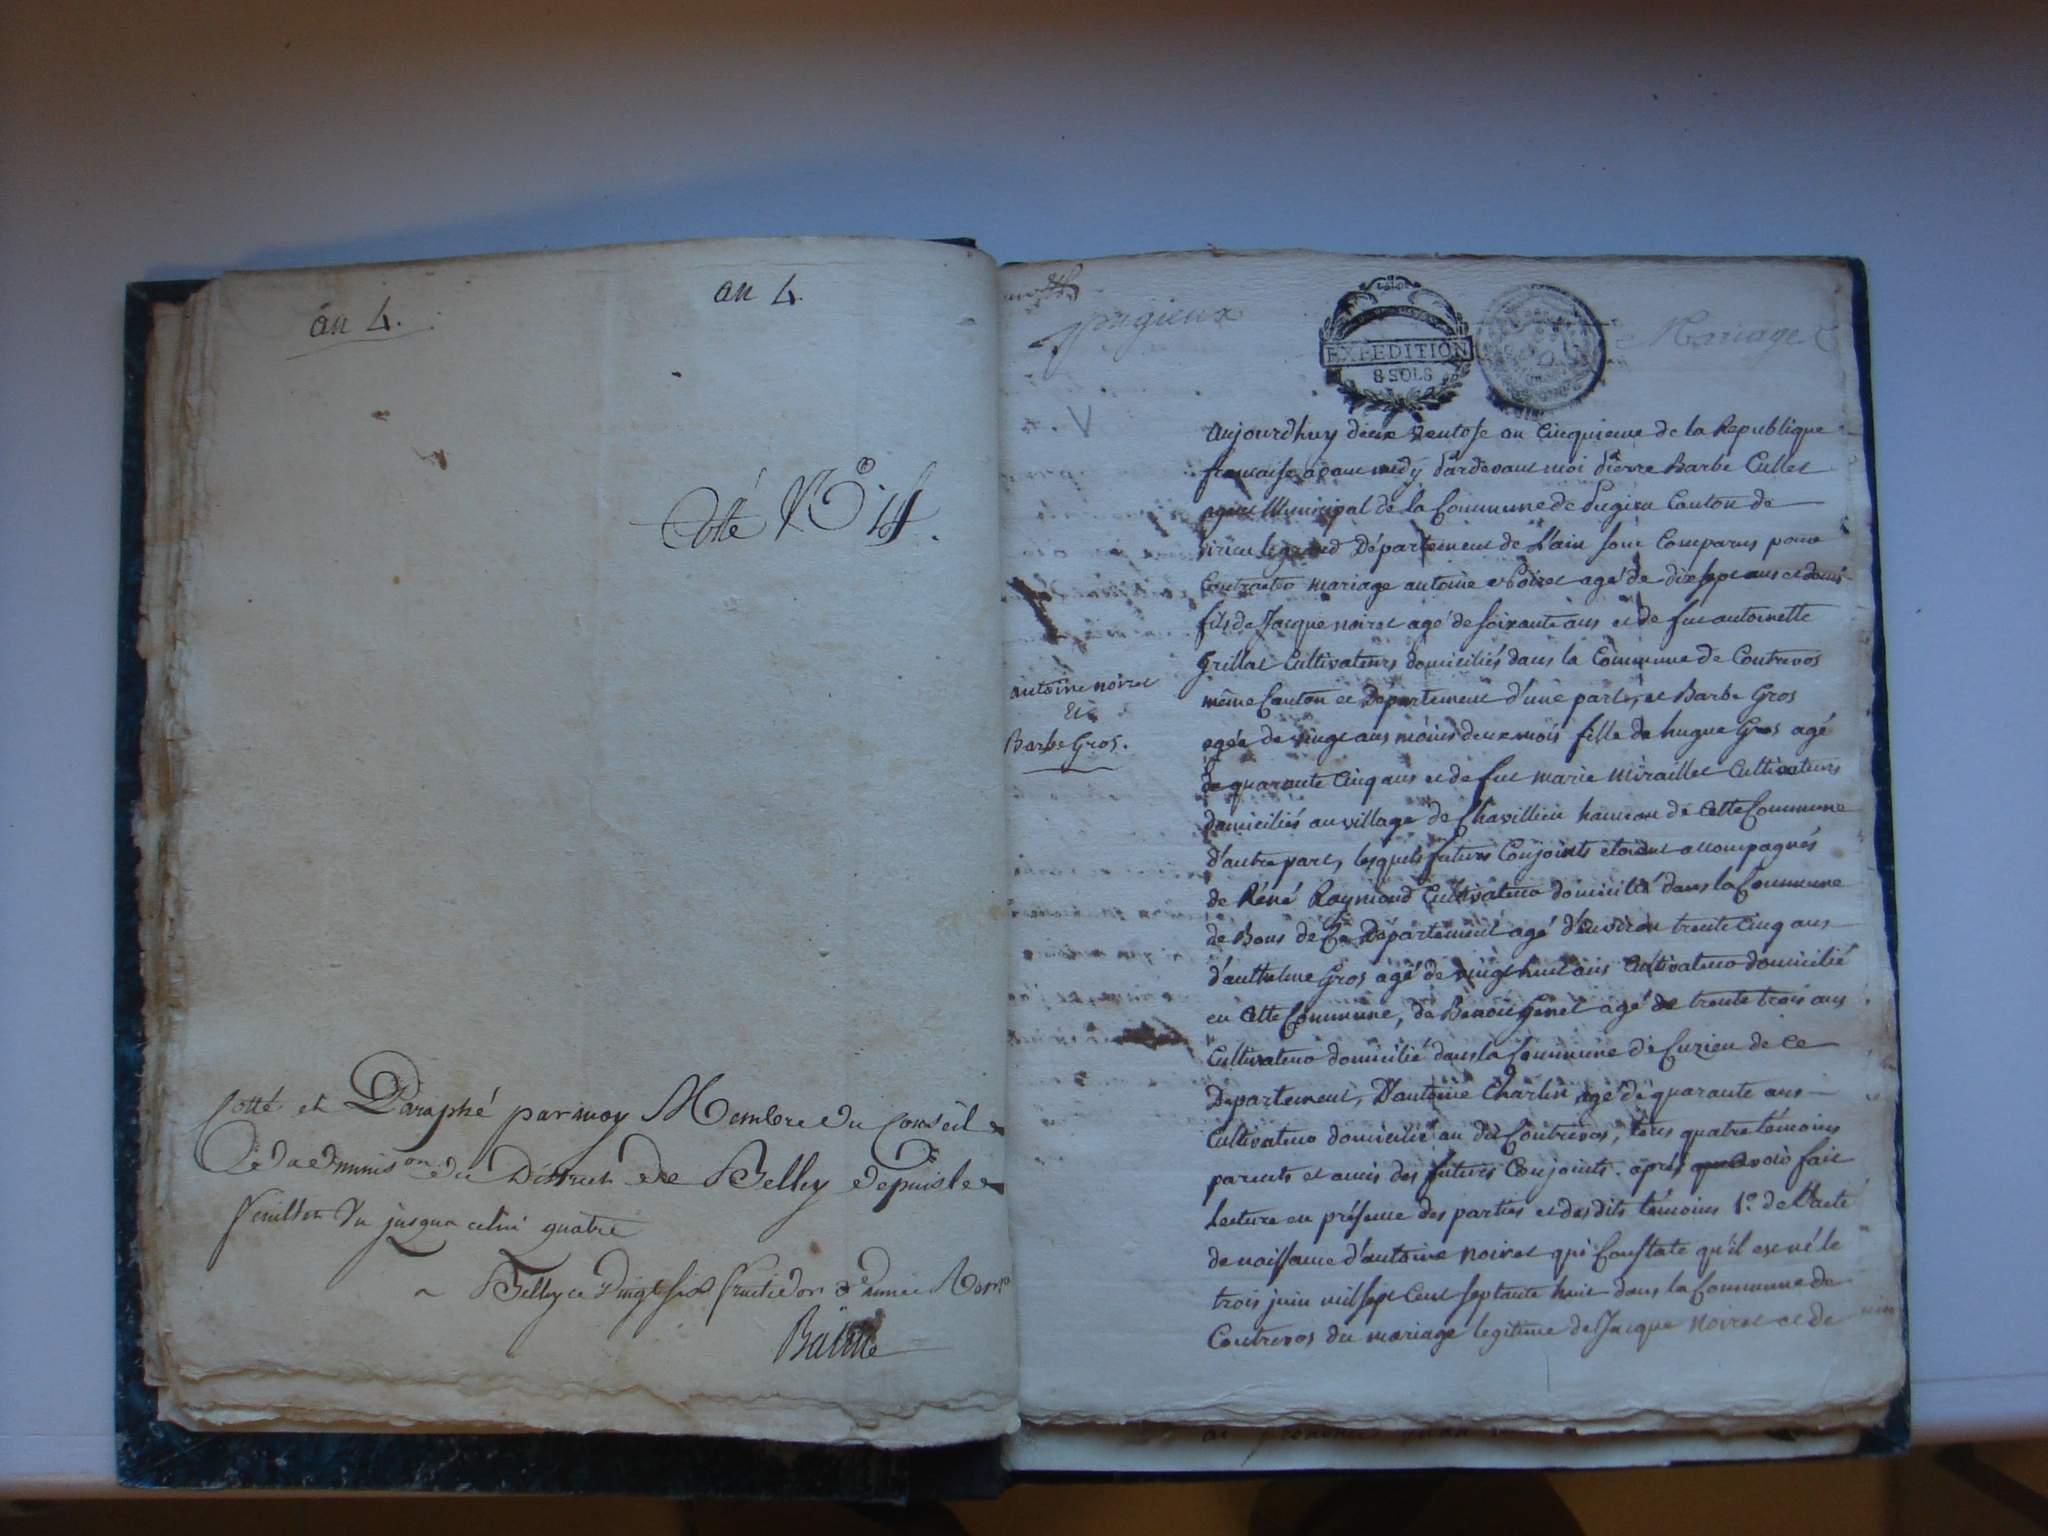 an 4.
an 4.
Cotté N.º 4.
Cotté et Paraphé par moy Membre du Conseil
d'adminis.on du District de Belley depuis le
feuillet Un jusqua celui quatre
Belley ce vingt six fructidor 3e année
Pugieux
EXPEDITION
8 SOLS
Mariage
antoine noiret
Et
Barbe Gros.
aujourdhuy deux ventose an cinquieme de la Republique
francaise avant midy pardevant moi Pierre Barbe Cullet
agent Municipal de la Commune de Pugieu Canton de
virieu le grand Département de L'ain sont Comparus pour
Contracter mariage antoine Noiret agé de dix sept ans et demi
fils de Jacque noiret agé de soixante ans et de fue antoinette
Grillat Cultivateurs domiciliés dans la Commune de Contrevos
même Canton et Departement d'une part, et Barbe Gros
agée de vingt ans moins deux mois fille de hugue Gros agé
de quarante Cinq ans et de fue marie miraillet Cultivateurs
domiciliés au village de Chavillieu hameau de cette Commune
d'autre part, lesquels futurs Conjoints étoient accompagnés
de Réné Raymond Cultivateur domicilié dans la Commune
de Bons de Ce Département agé d'environ trente cinq ans
d'anthelme Gros agé de vingt huit ans Cultivateur domicilié
en cette Commune, de Benoit Genet agé de trente trois ans
Cultivateur domicilié dans la Commune de Cuzieu de ce
Departement, D'antoine Charlin agé de quarante ans
Cultivateur domicilié au dit Contrevos, tous quatre témoins
parents et amis des futurs Conjoints. après avoir fait
Lecture en présence des parties et desdits témoins 1.º de L'acte
de naissance d'antoine noiret qui Constate qu'il est né le
trois juin mil sept Cent septante huit dans la Commune de
Contrevos du mariage legitime de Jacque Noiret et de